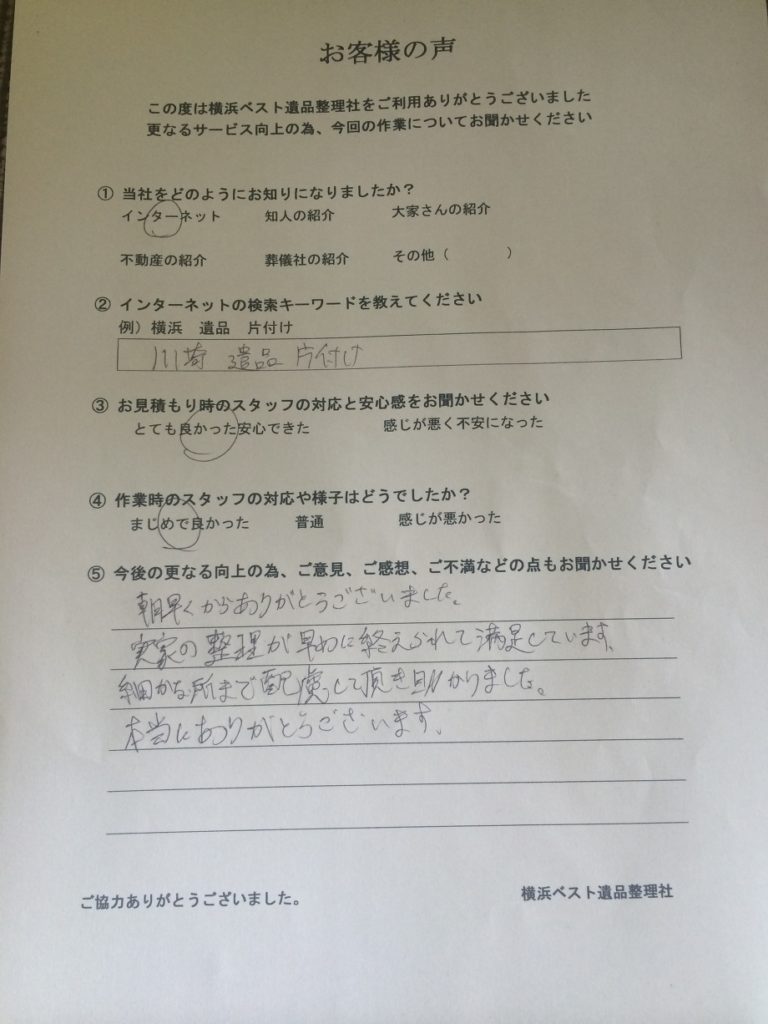 お客様の声
この度は横浜ベスト遺品整理社をご利用ありがとうございました
更なるサービス向上の為、今回の作業についてお聞かせください
① 当社をどのようにお知りになりましたか？
インターネット　知人の紹介　大家さんの紹介
不動産の紹介　葬儀社の紹介　その他（　　　）
② インターネットの検索キーワードを教えてください
例）横浜　遺品　片付け
川崎　遺品　片付け
③ お見積もり時のスタッフの対応と安心感をお聞かせください
とても良かった安心できた　感じが悪く不安になった
④ 作業時のスタッフの対応や様子はどうでしたか？
まじめで良かった　普通　感じが悪かった
⑤ 今後の更なる向上の為、ご意見、ご感想、ご不満などの点もお聞かせください
朝早くからありがとうございました。
実家の整理が早めに終えられて満足しています。
細かな所まで配慮して頂き助かりました。
本当にありがとうございます。
ご協力ありがとうございました。　横浜ベスト遺品整理社